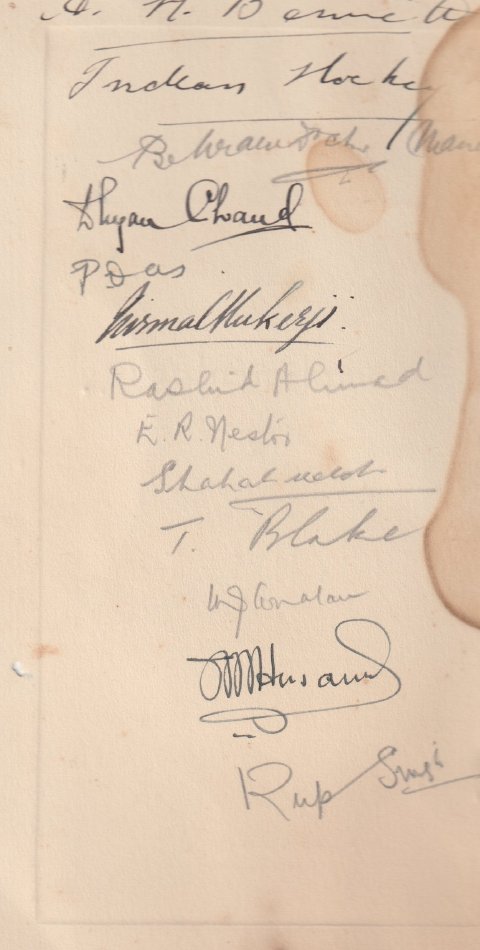 A. N. Bennett
Indian Hockey
Behram Doctor
Dhyan Chand
P Das
Nirmal Mukerji.
Rashid Ahmad
E. R. Nestor
Shahabuddin
T. Blake
M N Masud
Rup Singh